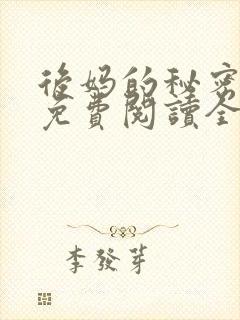 後妈的秘密
免費閱讀全
李發芽